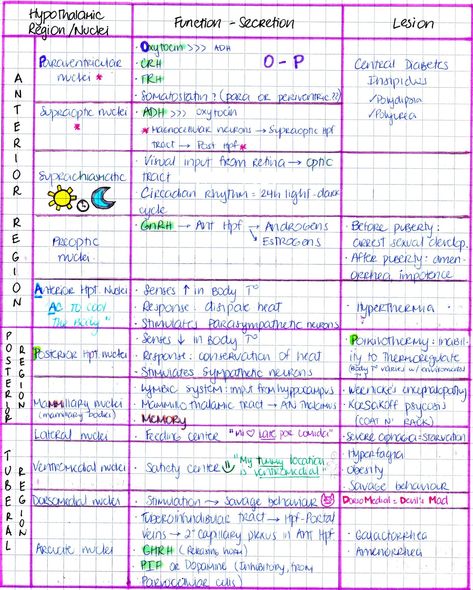 Hypothalamic
Region/Nuclei
Function - Secretion
Lesion
ANTERIOR REGION
Paraventricular
nuclei *
· Oxytocin >>> ADH
· CRH
· TRH
· Somatostatin? (para or periventric??)
O - P
Central Diabetes
Insipidus
/Polydipsia
/Polyuria
Supraoptic nuclei
*
· ADH >>> oxytocin
* Magnocellular neurons → Supraoptic Hpf
tract → Post Hpf *
Suprachiasmatic
· Visual input from retina → optic
tract
· Circadian rhythm: 24h light-dark
cycle
Preoptic
nuclei
· GnRH → Ant Hpf → Androgens
→ Estrogens
· Before puberty:
arrest sexual develop.
· After puberty: amen-
orrhea, impotence
Anterior Hpt Nuclei
AC to cool
"The Body"
· Senses ↑ in Body T°
· Response: dissipate heat
· Stimulates parasympathetic neurons
· Hyperthermia
POSTERIOR REGION
Posterior Hpt nuclei
· Senses ↓ in Body T°
· Response: conservation of heat
· Stimulates Sympathetic neurons
· Poikilothermy: inabil-
ity to Thermoregulate
(Body T° varies w/ enviromental
T°)
Mammillary nuclei
(mamillary bodies)
· Lymbic system: input from hyppocampus
· Mammillo thalamic tract → AN Thalamus
· MEMORY
· Wernicke's encephalopathy
· Korsakoff psycosis
(COAT N' RACK)
TUBERAL
Lateral nuclei
· Feeding center
"mi ♥ late por comida"
· Severe aphagia → starvation
Ventromedial nuclei
· Satiety center
"My tummy location
is ventromedial"
· Hyperfagia
· Obesity
· Savage behaviour
Dorsomedial nuclei
· Stimulation → Savage behaviour
DorsoMedial = Devil's Mad
Arcuate nuclei
· Tuberoinfundibular tract → Hpf-Portal
veins → 2° capillary plexus in Ant Hpf
· GHRH (Releasing horm)
· PIF or Dopamine (Inhibitory, from
Parvocellular cells)
· Galactorrhea
· Amenorrhea